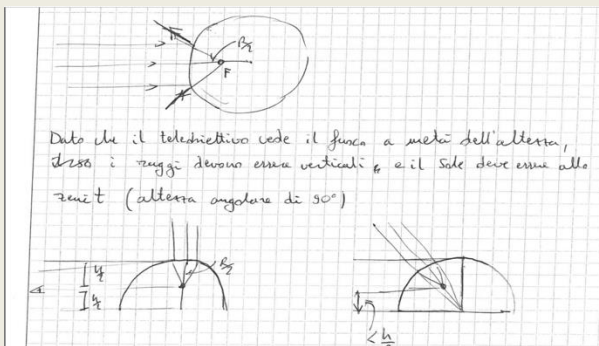 R/2
F
Dato che il teleobiettivo vede il fuoco a metà dell'altezza,
i raggi devono essere verticali, e il Sole deve essere allo
zenit (altezza angolare di 90°)
h/2
R/2
h/2
< h/2